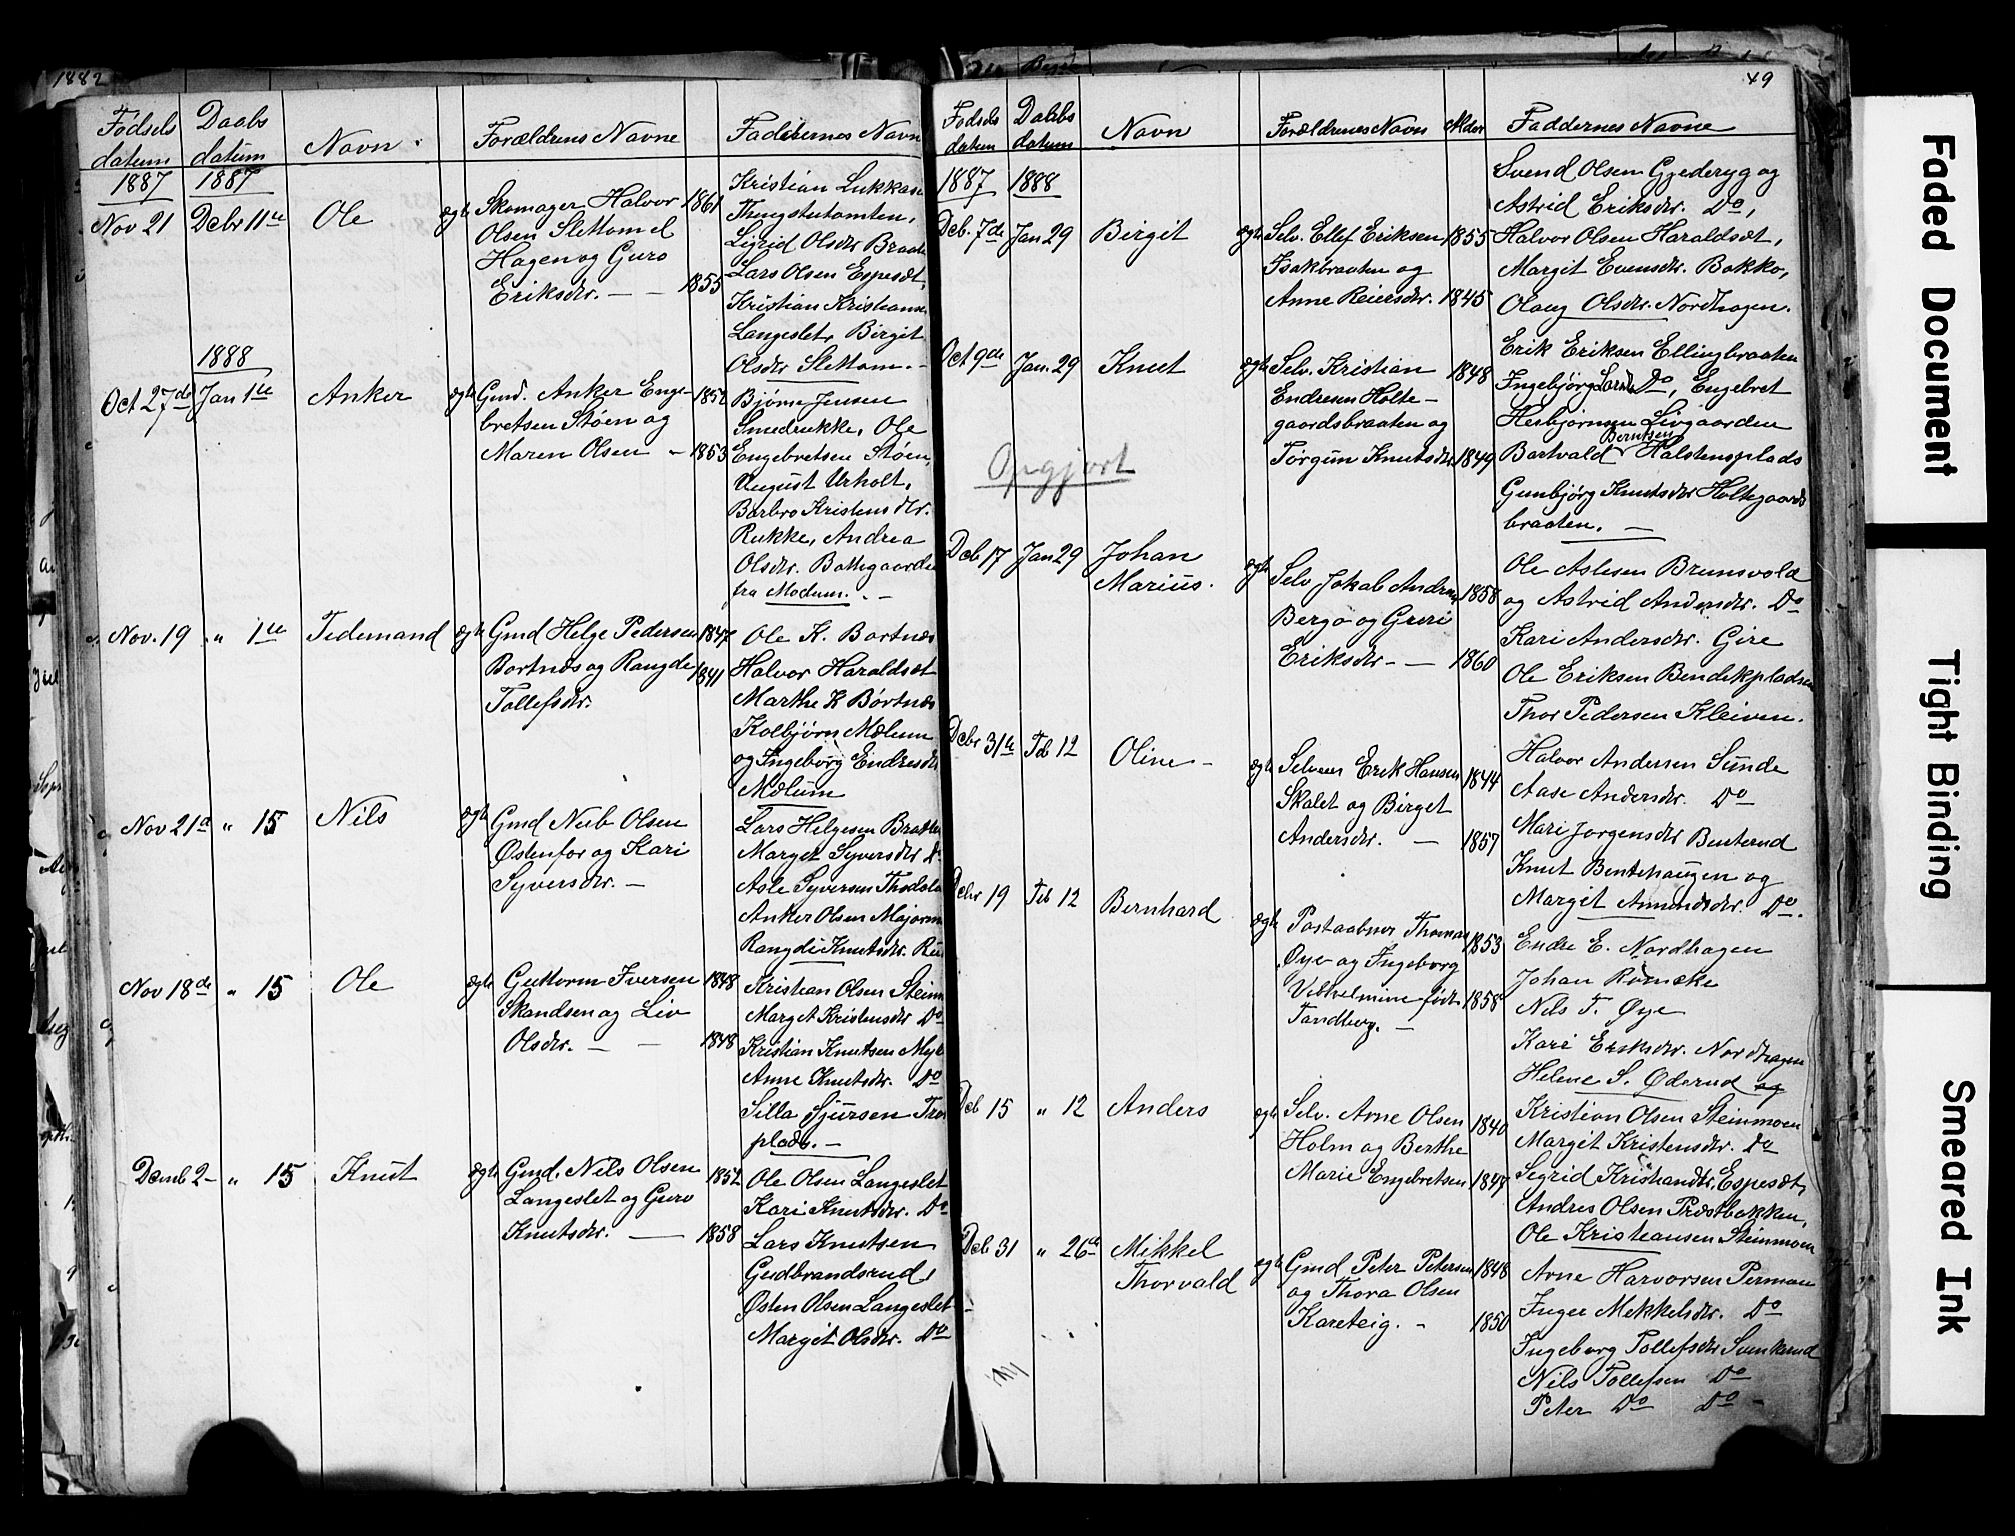 1882
Fødsels datum
Daabs datum
Navn.
Forældrenes Navne
Faddernes Navn
1887
1887
Nov 21
Decbr 11te
Ole
ægte
Skomager Halvor 1861
Olsen Slettom el
Hagen og Guro
Eriksdtr. — — 1855
Kristian Lukkas
Thingstutomten,
Sigrid Olsdtr Braate
Lars Olsen Espesæt,
Kristian Kristians
Langeslet, Birgit
Olsdtr Slettom. -
1888
Oct 27de
Jan 1te
Anker
ægte
Gmd. Anker Enge- 1852
bretsen Støen og
Maren Olsen - 1853
Bjørn Jensen
Smedrukke, Ole
Engebretsen Støen,
August Urholt,
Barbro Kristensdtr.
Rukke, Andrea
Olsdtr. Bottegaarde
fra Modum. -
Nov. 19
" 1te
Tedemand
ægte
Gmd Helge Pedersen 1847
Bortnæs og Rangde 1841
Tollefsdtr.
Ole K. Bortnæs
Halvor Haraldsæt
Marthe K Bortnæs
Kolbjørn Mælum
og Ingeborg Endresdtr
Mælum
Nov 21d
" 15
Nils
ægte
Gmd Neub Olsen
Østenfor og Kari
Syversdtr. -
Lars Helgesen Bratte
Marget Syversdtr Do
Asle Syversen Thodsla
Anker Olsen Majorm
Rangdi Knutsdtr. Ru
Nov 18de
" 15
Ole
ægte
Guttorm Iversen 1848
Skandsen og Liv
Olsdtr. — — 1848
Kristian Olsen Steinm
Marget Kristensdtr Do
Kristian Knutsen Myk
Anne Knutsdtr. Do
Silla Sjursen Tro
plads. -
Decmb 2 -
" 15
Knut
ægte
Gmd. Nils Olsen 1852
Langeslet og Guro
Knutsdtr. — 1858
Ole Olsen Langeslet
Kari Knutsdtr. Do
Lars Knutsen
Gudbrandsrud,
Østen Olsen Langeslet
Margit Olsdtr. Do
49
Fødsels datum
Daabs datum
Navn
Forældrenes Navn
Alder
Faddernes Navne
1887
1888
Deb. 7de
Jan 29
Birgit
ægte
Selv. Ellef Eriksen 1855
Isakbraaten og
Anne Reiersdtr. 1845
Svend Olsen Gjederyg og
Astrid Eriksdtr. Do,
Halvor Olsen Haraldsæt,
Margit Evensdtr. Bakko,
Olaug Olsdtr. Nordhagen.
Oct 9de
Jan. 29
Knut
ægte
Selv. Kristian 1848
Endresen Holte-
gaardsbraaten og
Torgun Knutsdtr 1849
Erik Eriksen Ellingbraaten
Ingebjørg Larsdtr Do, Engebret
Herbjørnsen Livgaarden
Bartvald Berntsen Halstensplads
Gunbjørg Knutsdtr Holtegaards
braaten. -
Opgjort
Deb 17
Jan 29
Johan
Marius.
ægte
Selv Jakob Andersen 1858
Bergo og Guri
Eriksdtr - — 1860
Ole Aslesen Brunsvold
og Astrid Andersdtr. Do
Kari Andersdtr. Gire
Ole Eriksen Bendekpladsen
Thor Pedersen Kleiven.
Debr 31te
Feb 12
Oline -
ægte
Selveier Erik Hansen 1844
Skalet og Birget
Andersdtr. — 1857
Halvor Andersen Sunde
Aase Andersdtr. Do
Mari Jorgensdtr Benterud
Knut Bentehaugen og
Margit Amundsdtr. Do.
Debr 19
Feb 12
Bernhard
ægte
Postaabner Thomas 1853
Øye og Ingeborg
Vilhelmine født 1858
Tandberg. -
Endre E. Nordhagen
Johan Romcke
Nils T. Øye
Kari Eriksdtr. Nordhagen
Helene S. Øderud og
Deb 15
" 12
Anders
ægte
Selv. Arne Olsen 1840
Holm og Berthe
Marie Engebretsen 1847
Kristian Olsen Steinmoen
Marget Kristensdtr. Do
Segrid Kristiansdtr. Espesæt,
Andres Olsen Præstbakken,
Ole Kristiansen Steinmoen
Deb 31
" 26de
Mikkel
Thorvald
ægte
Gmd Peter Petersen 1848
og Thora Olsen
Kareteig. - 1850
Arne Harvorsen Permoen
Inger Mekkelsdtr. Do
Ingeborg Tollefsdtr Sunkerud
Nils Tollefsen Do
Peter Do Do -
Faded Document
Tight Binding
Smeared Ink